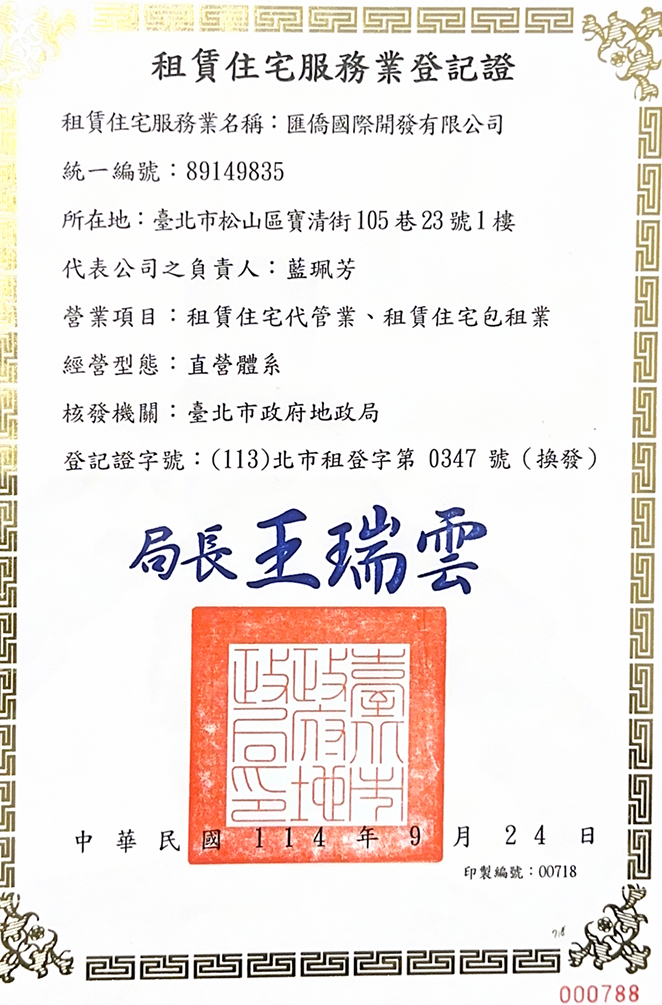 租賃住宅服務業登記證
租賃住宅服務業名稱：匯僑國際開發有限公司
統一編號：89149835
所在地：臺北市松山區寶清街105巷23號1樓
代表公司之負責人：藍珮芳
營業項目：租賃住宅代管業、租賃住宅包租業
經營型態：直營體系
核發機關：臺北市政府地政局
登記證字號：(113)北市租登字第 0347 號（換發）
局長王瑞雲
臺北市政府地政局印
中華民國114年9月24日
印製編號：00718
000788